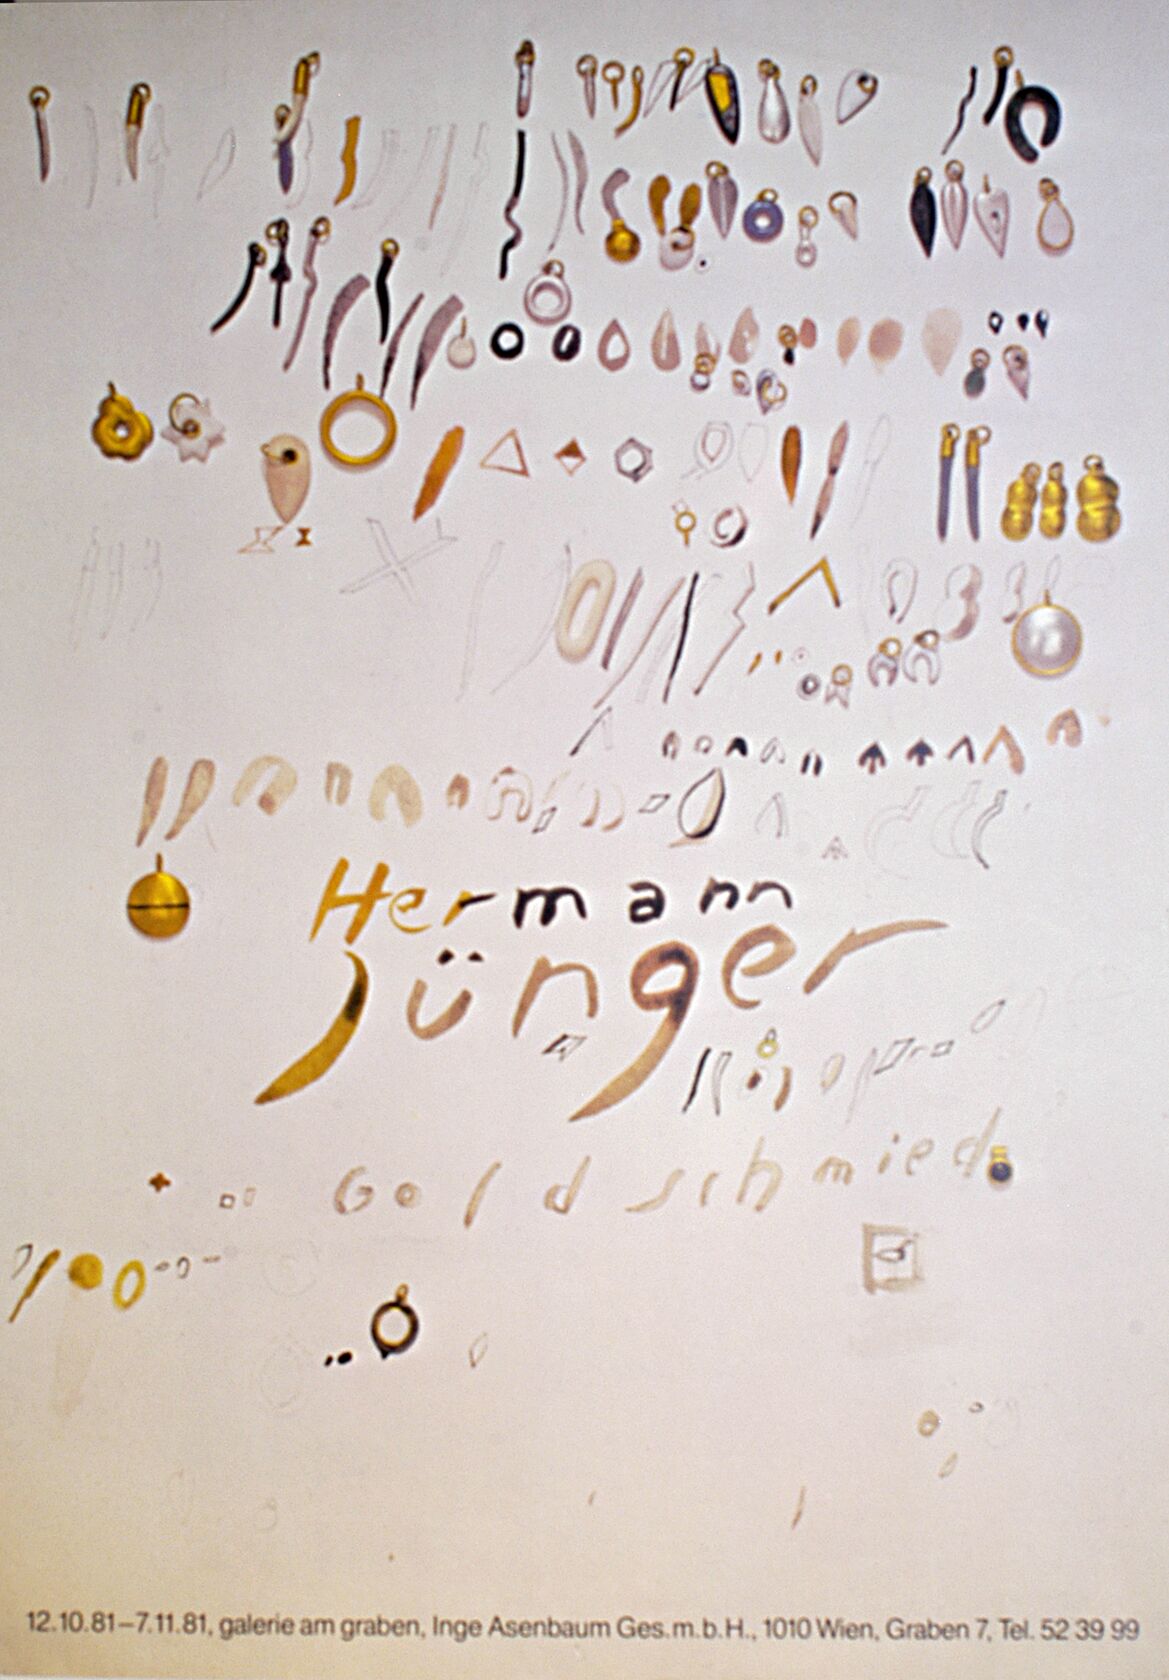 Hermann
Jünger
Goldschmied
12.10.81–7.11.81, galerie am graben, Inge Asenbaum Ges.m.b.H., 1010 Wien, Graben 7, Tel. 52 39 99